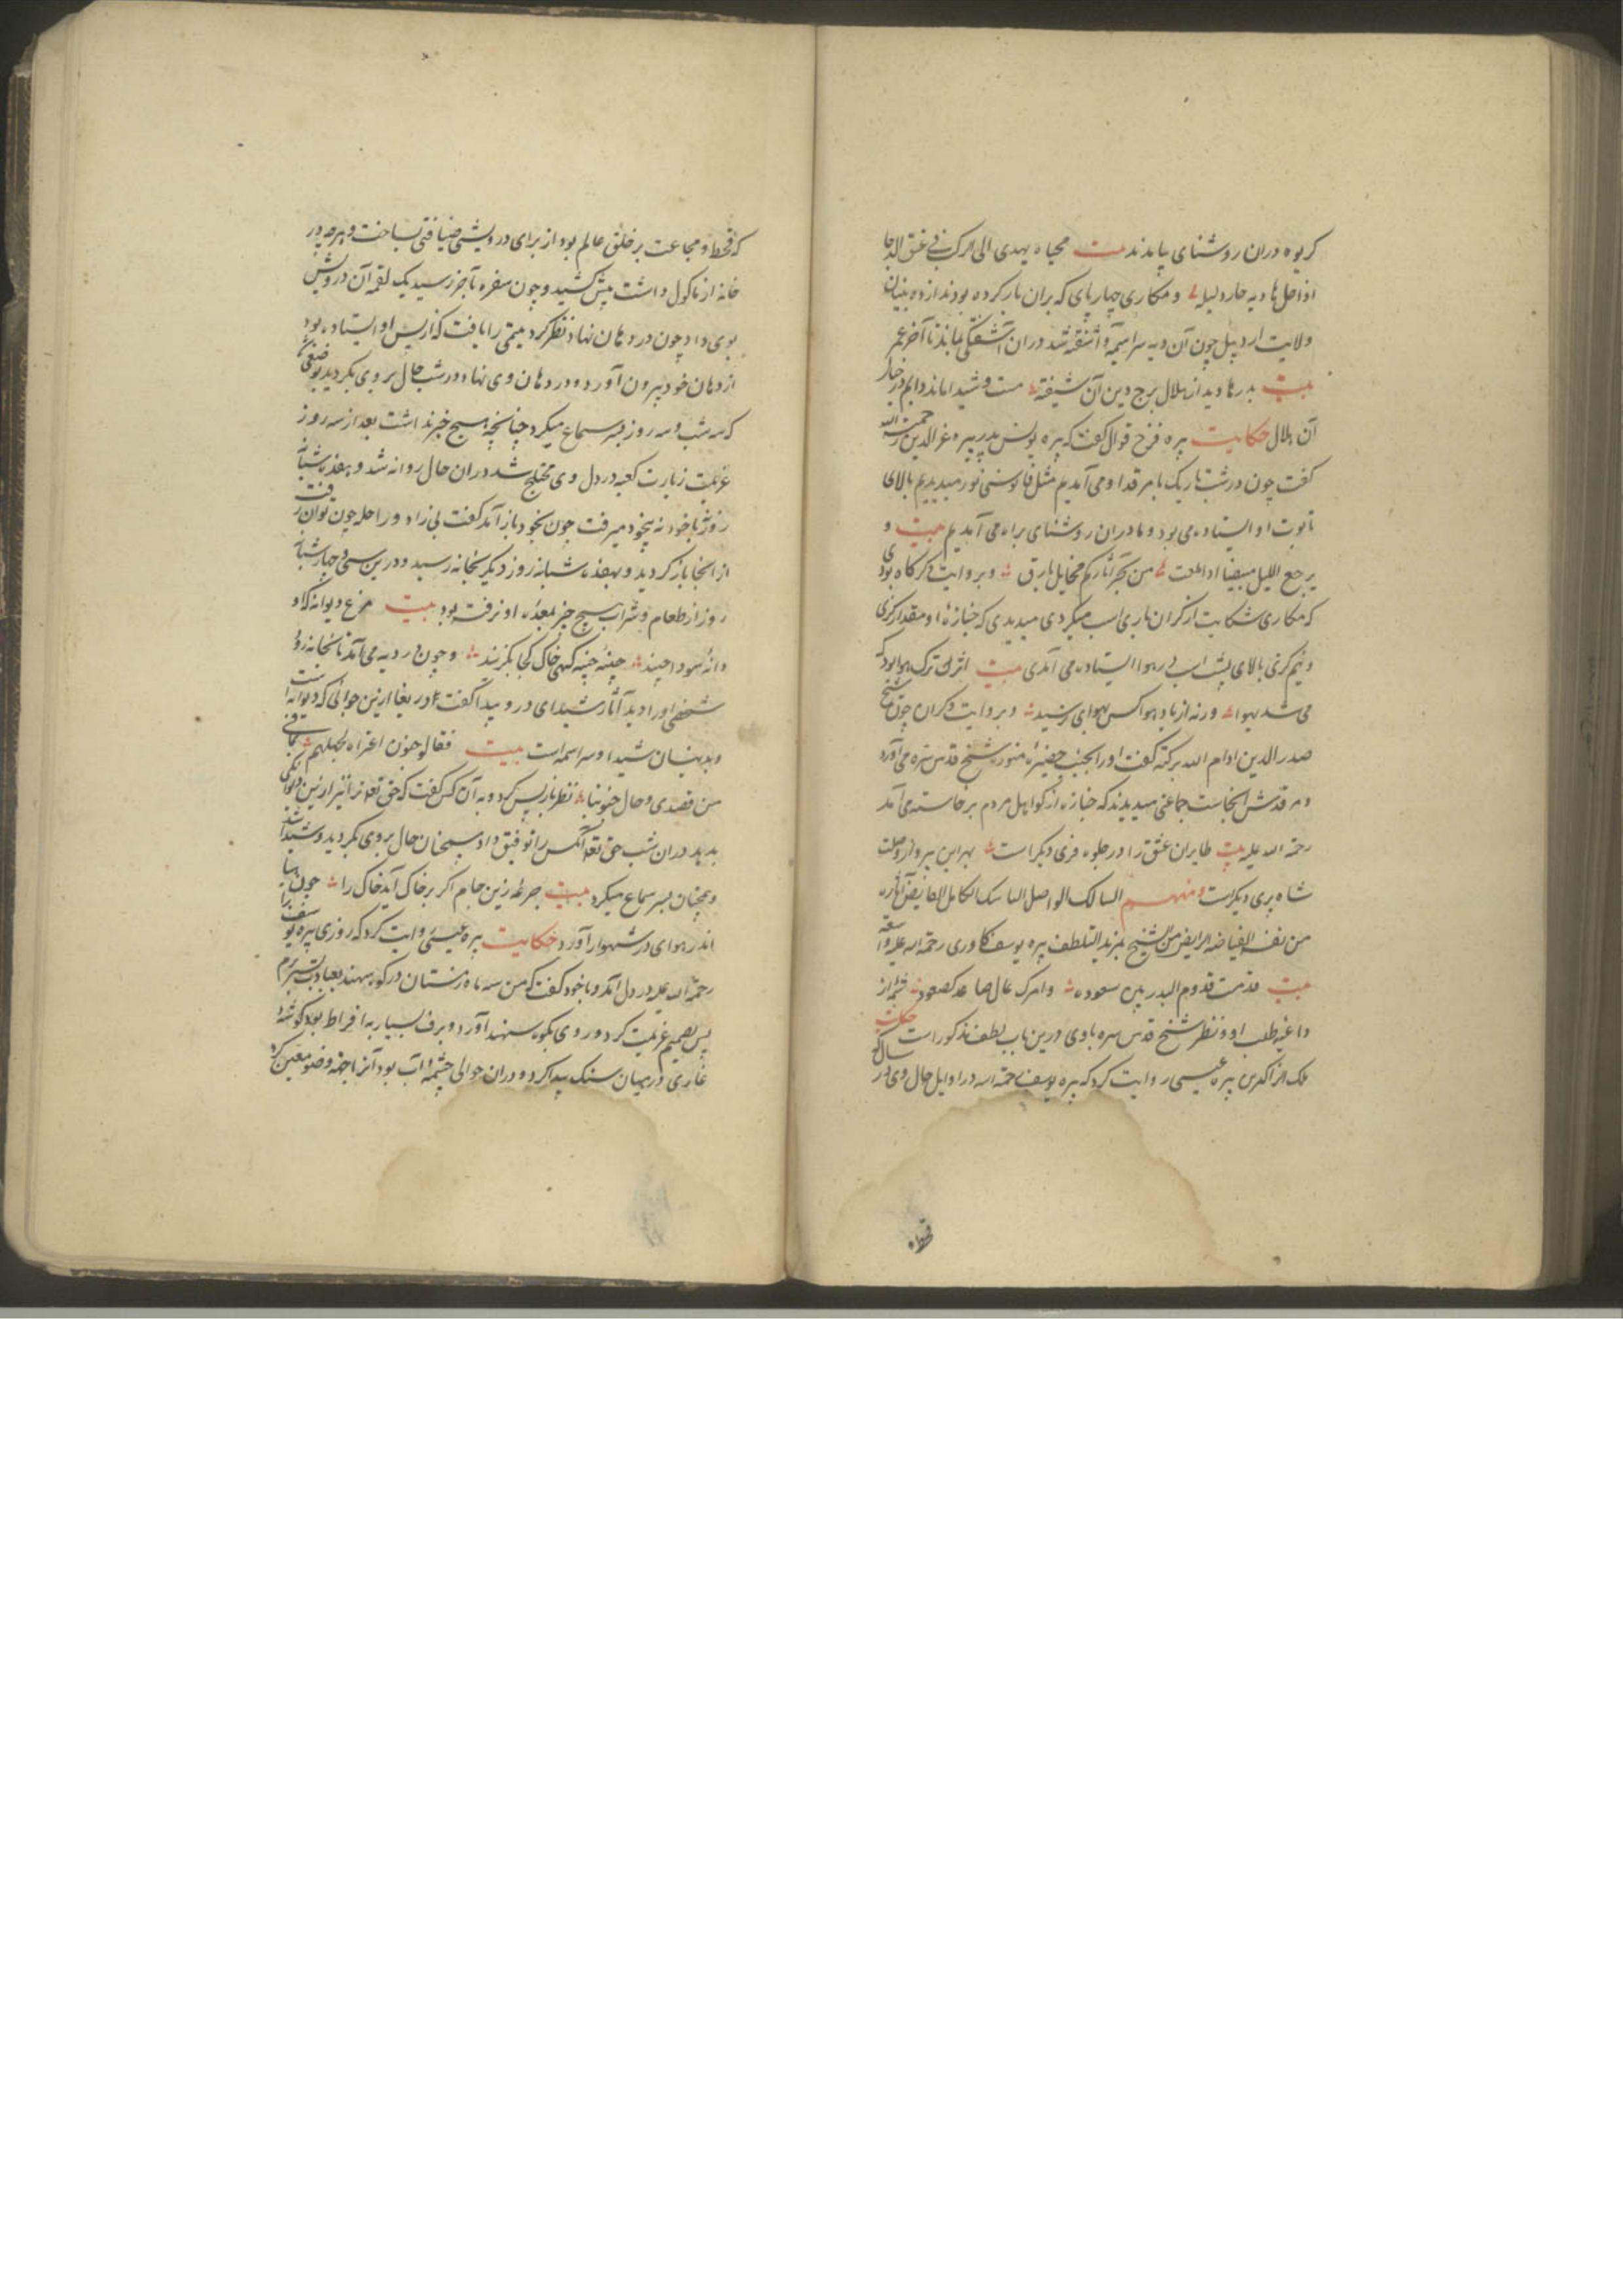 کریوه در آن روشنای پیامدند بیت محیاه یهدی الی الرکب فی غسق الدجا
اذا ضل هادیه حار دلیله و مکاری چهارپای که بر آن بار کرده بودند از ده
ولایت اردبیل چون آن دید سراسیمه و آشفته شد و در آن آشفتگی بماند تا آخر عمر
بیت بدرها دید از هلال برج دین آن شیفته مست و شیدا ماند دایم در خیال
آن هلال حکایت پیره فرخ قوال گفت که پیره یونس پدر پیره عزالدین رحمت الله
گفت چون در شب تاریک با مرقد او می آمدیم مثل فانوسی نور میدیدیم بالای
تابوت او ایستاده می بود و ما در آن روشنای براه می آمدیم بیت و
یرجع اللیل مبیضا اذا من و بروایت دیگر گاه بودی
که مکاری شکایت از گران باری اسب میکردی میدیدی که جنازه او مقدار گزی
و نیم گزی بالای پشت اسب در هوا ایستاده می آمدی بیت
می شد بهوا ورنه از باد هوا کس بهوای نرسید و بروایت دیگران چون شیخ
صدر الدین ادام الله برکته گفت او را بجنب حضیره منوره شیخ قدس سره می آورد
و مرقدش آنجاست جماعتی میدیدند که جنازه از کواهل مردم برخاسته می آمد
رحمة الله علیه بیت طایران عشق را در جلوه فری دیگر است بهر این پرواز وصلت
شاه پری دیگرست و منهم السالک الواصل الناسک الکامل
من الشیخ بمزید التلطف پیره یوسف کاوری رحمة الله علیه واسعة
بیت قدمت قدوم البدر بیت سعوده وامرک عال صاعد کصعوده
داعیه طلب او و نظر شیخ قدس سره با وی درین باب بلطف مذکور است حکایت
پیره عیسی روایت کرد که پیره یوسف رحمة الله در اوایل حال وی در سالی
قحط
که قحط و مجاعت بر خلق عالم بود از برای درویشی ضیافتی بساخت و هرچه در
خانه از ماکول داشت پیش کشید و چون سفره بآخر رسید یک لقمه آن درویش
بوی داد چون در دهان نهاد نظر کرد یتیمی را یافت که از پس او ایستاده بود
از دهان خود بیرون آورد و در دهان وی نهاد و در شب حال بر وی بگردید بوضعی
که سه شب و سه روز بسر سماع میکرد چنانچه هیچ خبر نداشت بعد از سه روز
عزیمت زیارت کعبه در دل وی مختلج شد در آن حال روانه شد و هفده شبانه
روز نه باخود نه بیخود میرفت چون بخود باز آمد گفت بی زاد و راحله چون توان رفت
از آنجا باز گردید و بهفده شبانه روز دیگر بخانه رسید و درین سی و چهار شبانه
روز از طعام و شراب هیچ چیز بمعده او نرفته بود بیت مرغ دیوانه که او
دانه سودا چیند چینه چینه کهی خاک کجا بگزیند و چون در دیه می آمد تا بخانه رود
شخصی او را دید آثار شیدای درو پیدا گفت ای دریغا ازین جوانی که دیوانه است
و بدینسان شیدا و سراسمه است بیت فقالو جنون اعتراه لجهلهم
من قصدی و حال جنونیا نظر باز پس کرد و به آن کس گفت که حق تعالی ترا نیز ازین دیوانگی
بدید در آن شب حق تعالی آنکس را توفیق داد همچنان حال بروی بگردید و شیدا شد
و همچنان بسر سماع میکرد بیت جرعه زین جام اگر بر خاک آید خاک را چون
اندر هوای در شهوار آورد حکایت پیره عیسی روایت کرد که روزی پیره یوسف را
رحمة الله علیه در دل آمد و با خود گفت که من سه ماه زمستان در کوه سهند بعبادت بسر برم
پس تصمیم عزیمت کرد و روی بکوه سهند آورد و برف بسیار به افراط بود گوشه و
غاری در میان سنگ پیدا کرد و در آن حوالی چشمه آب بود آنرا جهة وضو معین کرد